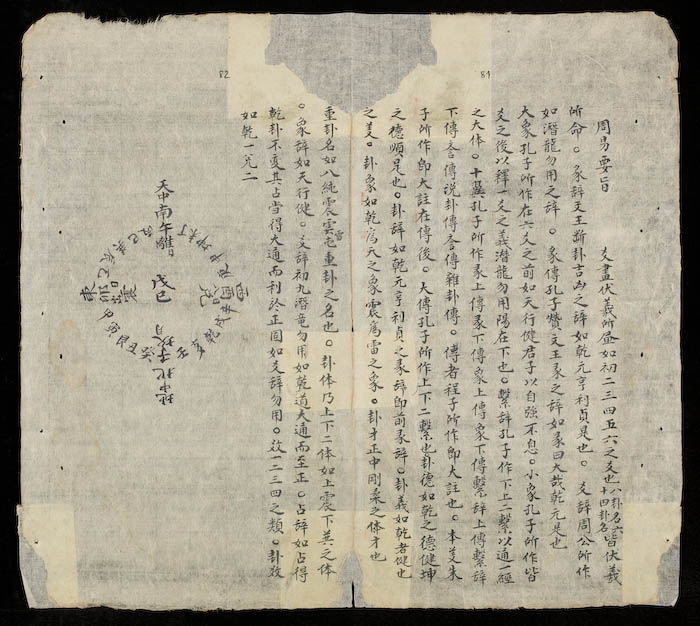 82
81
周易要旨
爻畫伏羲所畫如初二三四五六之爻也八卦名六十四卦名皆伏羲
所命。彖辞文王断卦吉凶之辞如乾元亨利貞是也。爻辞周公所作
如潛龍勿用之辞。彖傳孔子贊文王彖之辞如彖曰大哉乾元是也
大象孔子所作在六爻之前如天行健君子以自強不息。小象孔子所作皆
爻之後以釋一爻之義潛龍勿用陽在下也。繫辞孔子作下上二繫以通一經
之大体。十翼孔子所作彖上傳彖下傳象上傳象下傳繫辞上傳繫辞
下傳文言傳說卦傳序卦傳雜卦傳。傳者程子所作即大註也。本义朱
子所作即大註在傳後。大傳孔子所作上下二繫也卦德如乾之德健坤
之德順是也。卦辞如乾元亨利貞之彖辞即前彖辞。卦義如乾者健也
之义。卦象如乾爲天之象震爲雷之象。卦才正中剛柔之体才也
重卦名如八純震雲雷屯重卦之名也。卦体乃上下二体如上震下巽之体
。象辞如天行健。爻辞初九潛竜勿用如乾道大通而至正。占辞如占得
乾卦不变其占当得大通而利於正固如爻辞勿用。效一二三四之類。卦效
如乾一兌二
天中南午離
戊己
地中北子坎月
東